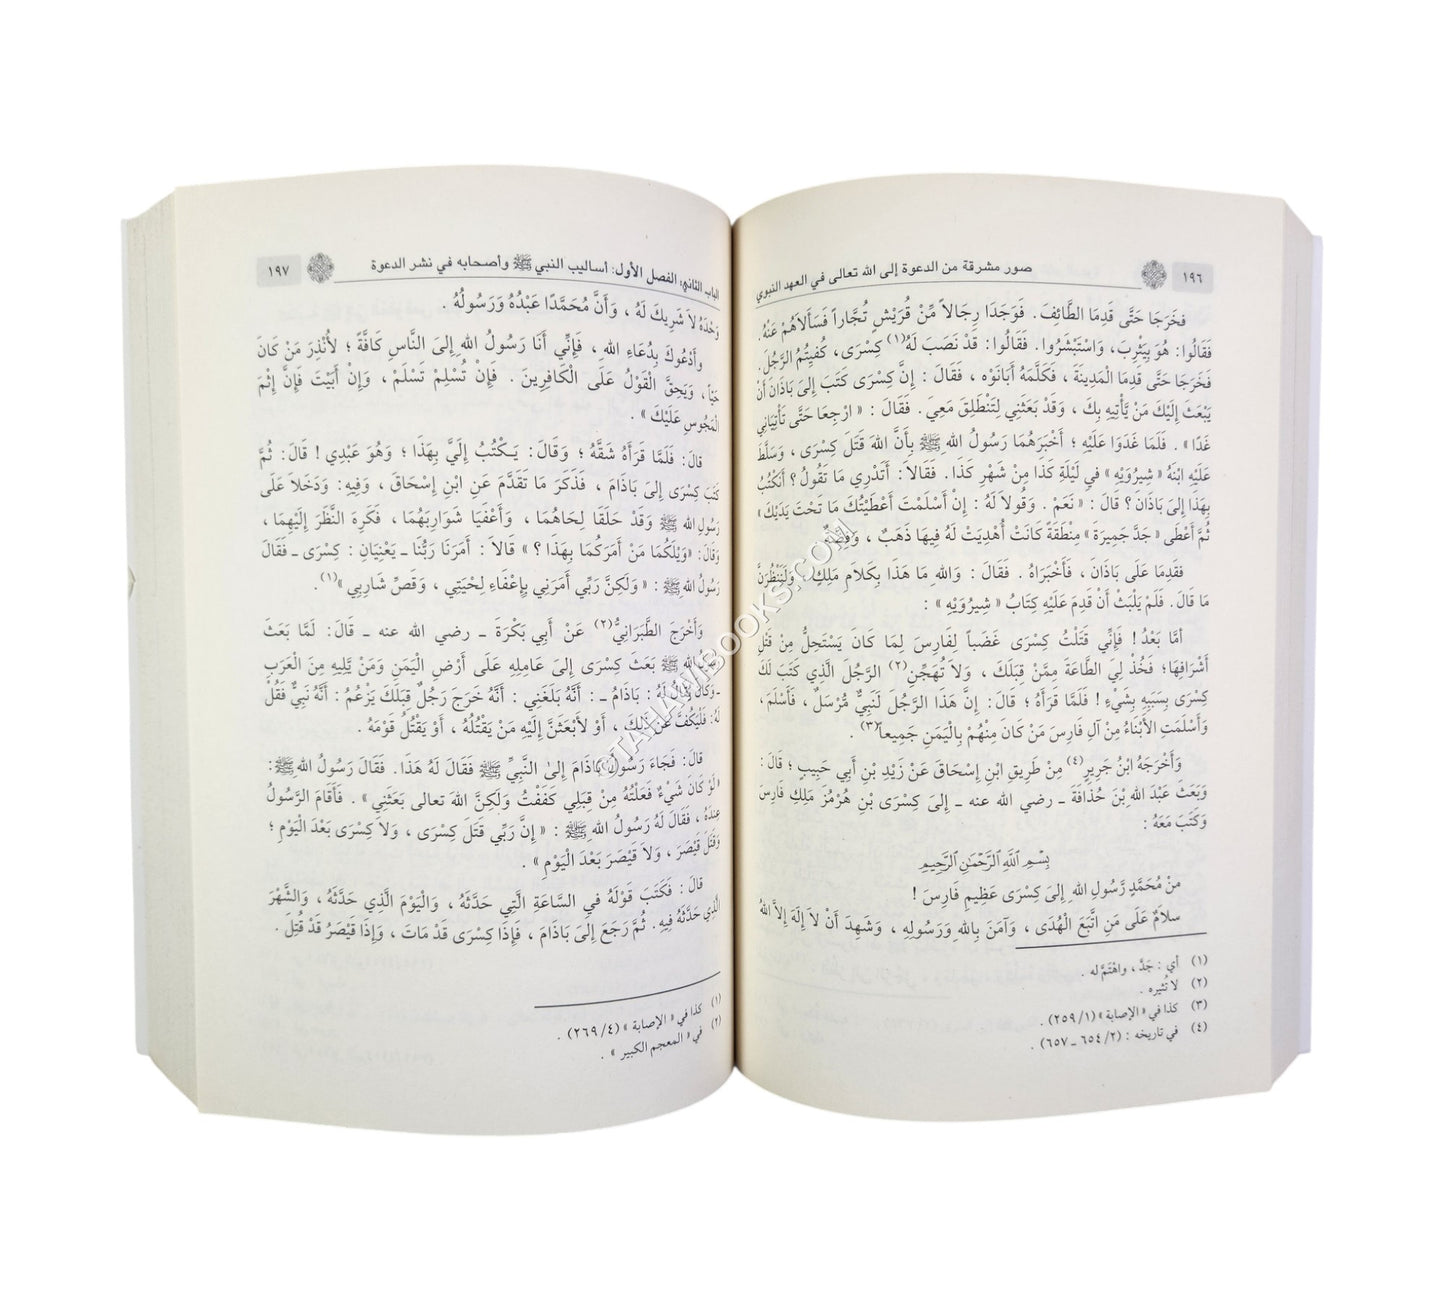 ١٩٦
صور مشرقة من الدعوة إلى الله تعالى في العهد النبوي
فَخَرَجَا حَتَّى قَدِمَا الطَّائِفَ . فَوَجَدَا رِجَالاً مِّنْ قُرَيْشٍ تُجَّاراً فَسَأَلاَهُمْ عَنْهُ .
فَقَالُوا: هُوَ بِيَثْرِبَ، وَاسْتَبْشَرُوا. فَقَالُوا: قَدْ نَصَبَ لَهُ(١) كِسْرَى، كُفِيتُمُ الرَّجُلَ.
فَخَرَجَا حَتَّى قَدِمَا الْمَدِينَةَ ، فَكَلَّمَهُ أَبَانَوْه ، فَقَالَ : إِنَّ كِسْرَى كَتَبَ إِلَىٰ بَاذَانَ أَنْ
يَبْعَثَ إِلَيْكَ مَنْ يَّأْتِيهِ بِكَ ، وَقَدْ بَعَثَنِي لِتَنْطَلِقَ مَعِيَ . فَقَالَ : « ارْجِعَا حَتَّى تَأْتِيَانِي
غَدًا» . فَلَمَّا غَدَوَا عَلَيْهِ ؛ أَخْبَرَهُمَا رَسُولُ اللهِ ﷺ بِأَنَّ اللهَ قَتَلَ كِسْرَى ، وَسَلَّطَ
عَلَيْهِ ابْنَهُ « شِيرُوَيْهِ » في لَيْلَةِ كَذَا مِنْ شَهْرِ كَذَا. فَقَالاَ: أَتَدْرِي مَا تَقُولُ؟ أَنَكْتُبُ
بِهَذَا إِلَىٰ بَاذَانَ؟ قالَ : « نَعَمْ . وَقُولاَ لَهُ : إِنْ أَسْلَمْتَ أَعْطَيْتُكَ مَا تَحْتَ يَدَيْكَ»
ثُمَّ أَعْطَى «جَدَّ جَمِيرَةَ» مِنْطَقَةً كَانَتْ أُهْدِيَتْ لَهُ فِيهَا ذَهَبٌ ، وَفِضَّةٌ .
فَقَدِمَا عَلَى بَاذَانَ ، فَأَخْبَرَاهُ . فَقَالَ : وَاللهِ مَا هَذَا بِكَلاَمِ مَلِكٍ ، وَلَنَنْظُرَنَّ
مَا قَالَ . فَلَمْ يَلْبَثْ أَنْ قَدِمَ عَلَيْهِ كِتَابُ « شِيرُوَيْهِ » :
أمَّا بَعْدُ ! فَإِنِّي قَتَلْتُ كِسْرَى غَضَباً لِفَارِسَ لِمَا كَانَ يَسْتَحِلُّ مِنْ قَتْلِ
أَشْرَافِهَا؛ فَخُذْ لِيَ الطَّاعَةَ مِمَّنْ قِبَلَكَ ، وَلاَ تُهَجِّنِ(٢) الرَّجُلَ الَّذِي كَتَبَ لَكَ
كِسْرَى بِسَبَبِهِ بِشَيْءٍ ! فَلَمَّا قَرَأَهُ ؛ قالَ : إِنَّ هَذَا الرَّجُلَ لَنَبِيٌّ مُّرْسَلٌ ، فَأَسْلَمَ ،
وَأَسْلَمَتِ الأَبْنَاءُ مِنْ آلِ فَارِسَ مَن كَانَ مِنْهُمْ بِالْيَمَنِ جَمِيعاً(٣) .
وَأَخْرَجَهُ ابْنُ جَرِيرٍ(٤) مِن طَرِيقِ ابْنِ إِسْحَاقَ عَنْ زَيْدِ بْنِ أَبِي حَبِيبٍ ؛ قالَ :
وَبَعَثَ عَبْدَ اللهِ بْنَ حُذَافَةَ ـ رضي الله عنه ـ إِلَىٰ كِسْرَى بْنِ هُرْمُزَ مَلِكِ فَارِسَ
وَكَتَبَ مَعَهُ :
بِسْمِ اللهِ الرَّحْمَنِ الرَّحِيمِ
مِنْ مُحَمَّدٍ رَّسُولِ اللهِ إِلىٰ كِسْرَى عَظِيمِ فَارِسَ !
سَلاَمٌ عَلَى مَنِ اتَّبَعَ الْهُدَى ، وَآمَنَ بِاللهِ وَرَسُولِهِ ، وَشَهِدَ أَنْ لاَ إِلَهَ إِلاَّ اللهُ
(١) أي : جَدَّ ، واهْتَمَّ له .
(٢) لا تُثيره .
(٣) كذا في « الإصابة » (٢٥٩/١) .
(٤) في تاريخه : (٢/ ٦٥٤ ـ ٦٥٧) .
الباب الثاني؛ الفصل الأول: أساليب النبي ﷺ وأصحابه في نشر الدعوة
١٩٧
وَحْدَهُ لاَ شَرِيكَ لَهُ ، وَأَنَّ مُحَمَّدًا عَبْدُهُ وَرَسُولُهُ .
وأَدْعُوكَ بِدُعَاءِ اللهِ ، فَإِنِّي أَنَا رَسُولُ اللهِ إِلَى النَّاسِ كَافَّةً ؛ لأُنْذِرَ مَنْ كَانَ
حَيّاً ، وَيَحِقَّ الْقَوْلُ عَلَى الْكَافِرِينَ . فَإِن تُسْلِمْ تَسْلَمْ ، وَإِنْ أَبَيْتَ فَإِنَّ إِثْمَ
الْمَجُوسِ عَلَيْكَ » .
قالَ: فَلَمَّا قَرَأَهُ شَقَّهُ ؛ وَقَالَ: يَكْتُبُ إِلَيَّ بِهَذَا ؛ وَهُوَ عَبْدِي ! قَالَ: ثُمَّ
كَتَبَ كِسْرَى إِلىٰ بَاذَامَ ، فَذَكَرَ مَا تَقَدَّمَ عَنِ ابْنِ إِسْحَاقَ ، وَفِيهِ: وَدَخَلاَ عَلَى
رَسُولِ اللهِ ﷺ وَقَدْ حَلَقَا لِحَاهُمَا ، وَأَعْفَيَا شَوَارِبَهُمَا ، فَكَرِهَ النَّظَرَ إِلَيْهِمَا ،
وَقَالَ: «وَيْلَكُمَا مَنْ أَمَرَكُمَا بِهَذَا ؟ » قَالاَ : أَمَرَنَا رَبُّنَا ـ يَعْنِيَانِ : كِسْرَى ـ فَقَالَ
رَسُولُ اللهِ ﷺ : « وَلَكِنَّ رَبِّي أَمَرَنِي بِإِعْفَاءِ لِحْيَتِي ، وَقَصِّ شَارِبِي »(١) .
وَأَخْرَجَ الطَّبَرَانِيُّ(٢) عَنْ أَبِي بَكْرَةَ ـ رضي الله عنه ـ قَالَ: لَمَّا بَعَثَ
رَسُولُ اللهِ ﷺ بَعَثَ كِسْرَى إِلىٰ عَامِلِهِ عَلَى أَرْضِ الْيَمَنِ وَمَنْ يَّلِيهِ مِنَ الْعَرَبِ
ـ وَكَانَ يُقَالُ لَهُ : بَاذَامُ ـ : أَنَّهُ بَلَغَنِي : أَنَّهُ خَرَجَ رَجُلٌ قِبَلَكَ يَزْعُمُ : أَنَّهُ نَبِيٌّ فَقُلْ
لَهُ: فَلْيَكُفَّ عَنْ ذَلِكَ ، أَوْ لأَبْعَثَنَّ إِلَيْهِ مَنْ يَقْتُلُهُ ، أَوْ يَقْتُلُ قَوْمَهُ .
قالَ: فَجَاءَ رَسُولُ بَاذَامَ إِلَىٰ النَّبِيِّ ﷺ فَقَالَ لَهُ هَذَا. فَقَالَ رَسُولُ اللهِ ﷺ:
«لَوْ كَانَ شَيْءٌ فَعَلْتُهُ مِنْ قِبَلِي كَفَفْتُ وَلَكِنَّ اللهَ تعالى بَعَثَنِي» . فَأَقَامَ الرَّسُولُ
عِنْدَهُ ، فَقَالَ لَهُ رَسُولُ اللهِ ﷺ : « إِنَّ رَبِّي قَتَلَ كِسْرَى ، وَلاَ كِسْرَى بَعْدَ الْيَوْمِ ؛
وَقَتَلَ قَيْصَرَ ، وَلاَ قَيْصَرَ بَعْدَ الْيَوْمِ » .
قالَ: فَكَتَبَ قَوْلَهُ في السَّاعَةِ الَّتِي حَدَّثَهُ ، وَالْيَوْمَ الَّذِي حَدَّثَهُ ، وَالشَّهْرَ
الَّذِي حَدَّثَهُ فِيهِ. ثُمَّ رَجَعَ إِلَىٰ بَاذَامَ ، فَإِذَا كِسْرَى قَدْ مَاتَ ، وَإِذَا قَيْصَرُ قَدْ قُتِلَ .
(١) كذا في « الإصابة » (٤/ ٢٦٩) .
(٢) في « المعجم الكبير » .
TAHAWIBOOKS.COM